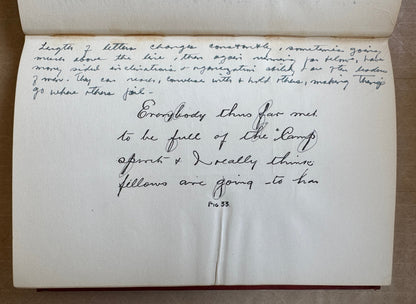 Length of letters changes constantly, sometimes going
much above the line, then again running far below, have
many sided inclinations & organization ability, are the leaders
of men. They can reach, converse with & hold others, making things
go where others fail -
Everybody thus far met
to be full of the "Camp
spirit & I really think
fellows are going to hav
FIG 53.